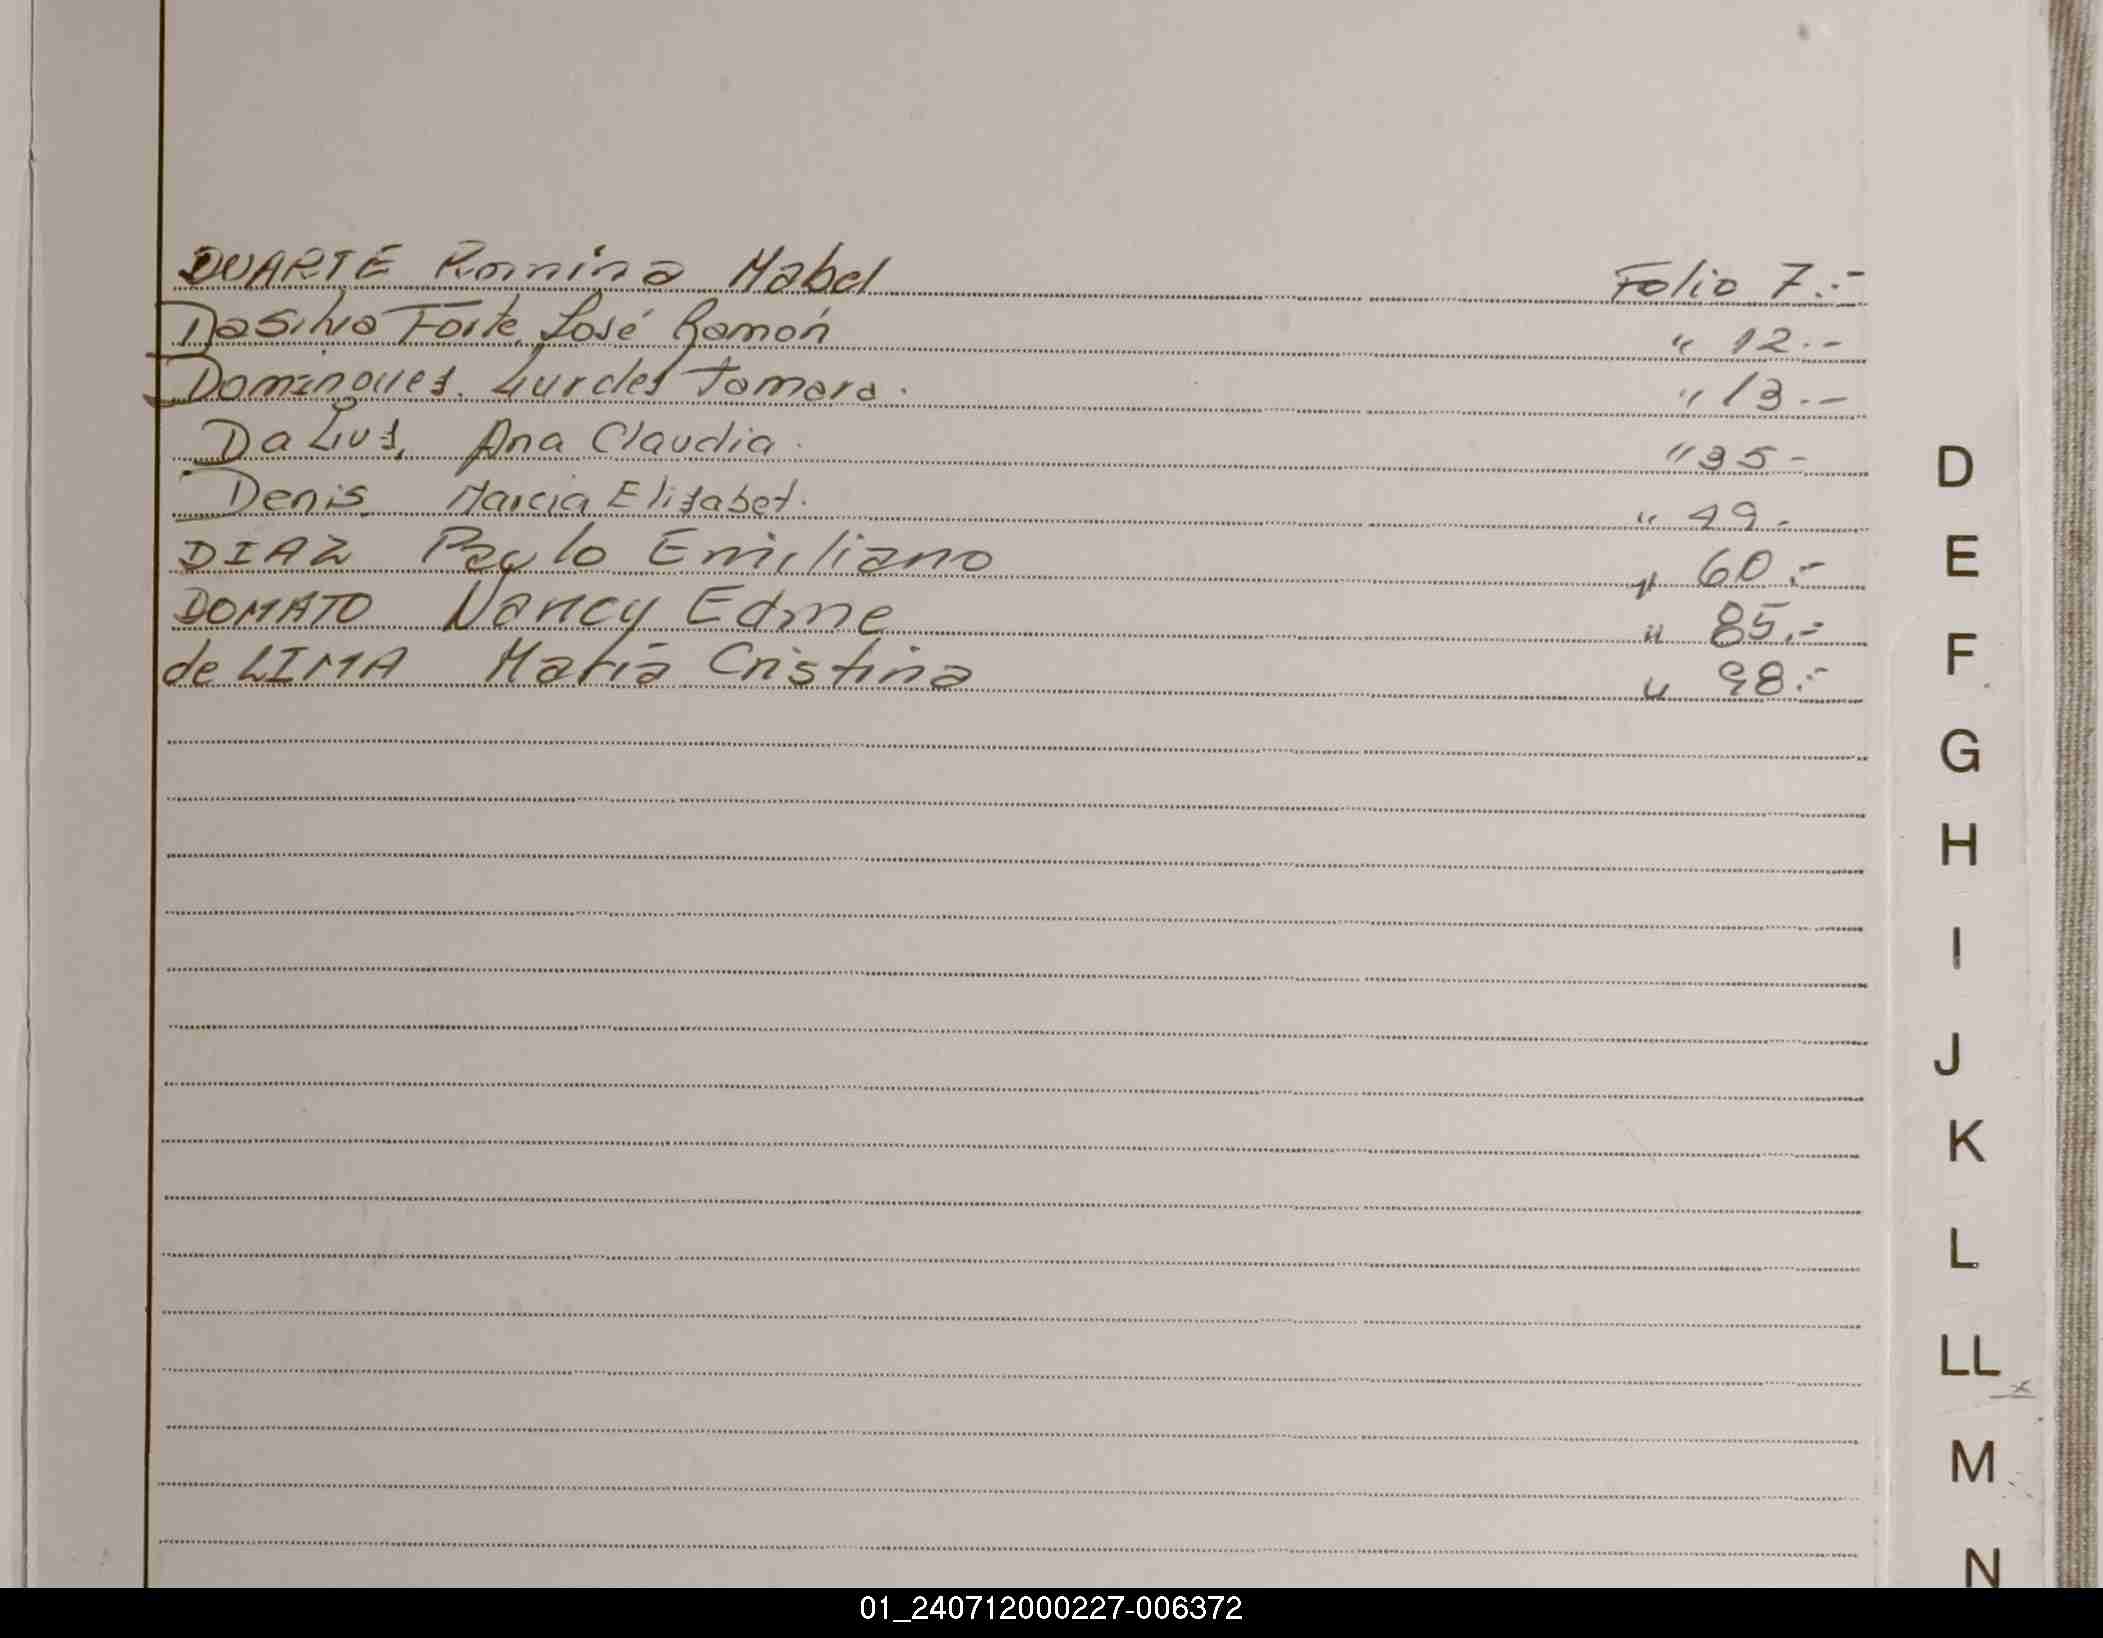 DUARTE Romina Mabel Folio 7.-
Dasilva Forte, José Ramón " 12.-
Domingues, Lurdes Tamara. " 13.-
Da Luz, Ana Claudia. " 35-
Denis Marcia Elisabet. " 49-
DIAZ Paulo Emiliano " 60.-
DOMATO Nancy Edme " 85.-
de LIMA Maria Cristina " 98.-
D
E
F
G
H
I
J
K
L
LL
M
N
01_240712000227-006372